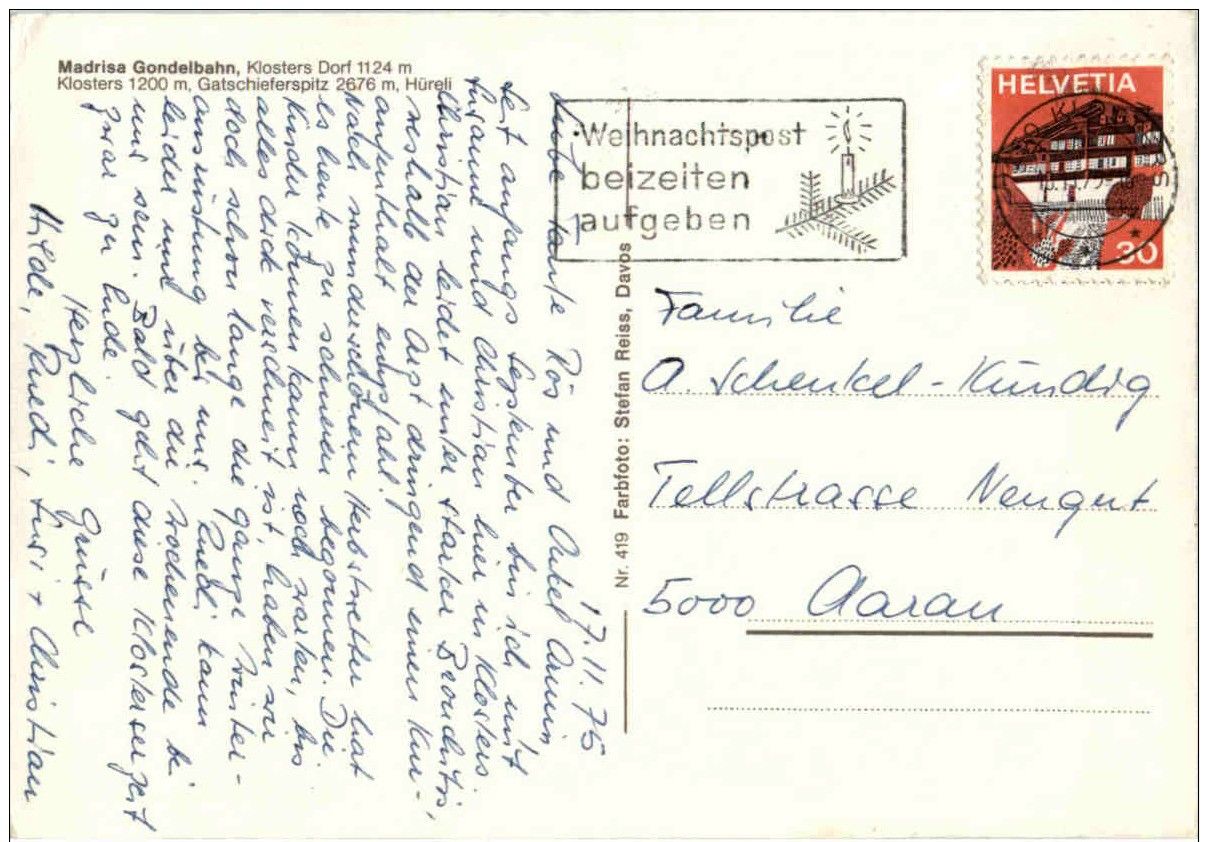 Madrisa Gondelbahn, Klosters Dorf 1124 m
Klosters 1200 m, Gatschieferspitz 2676 m, Hüreli
Weihnachtspost
beizeiten
aufgeben
HELVETIA
30
Nr. 419 Farbfoto: Stefan Reiss, Davos
Familie
A. Schenkel-Kündig
Tellstrasse Neugut
5000 Aarau
17.11.75
Liebe Tante Rös und Onkel Armin
Seit anfangs September bin ich mit
Susanne und Christian hier in Klosters.
Christian leidet unter starker Bronchitis,
weshalb der Arzt dringend einen Kur-
aufenthalt empfahl.
Nach wunderschönem Herbstwetter hat
es heute zu schneien begonnen. Die
Kinder können kaum noch warten, bis
alles dick verschneit ist, haben sie
doch schon lange die ganze Winter-
ausrüstung bei uns. Ruedi kann
leider nur über die Wochenende bei
uns sein. Bald geht diese Klosterserzeit
zwar zu Ende.
Herzliche Grüsse
Hilde, Ruedi, Susi + Christian